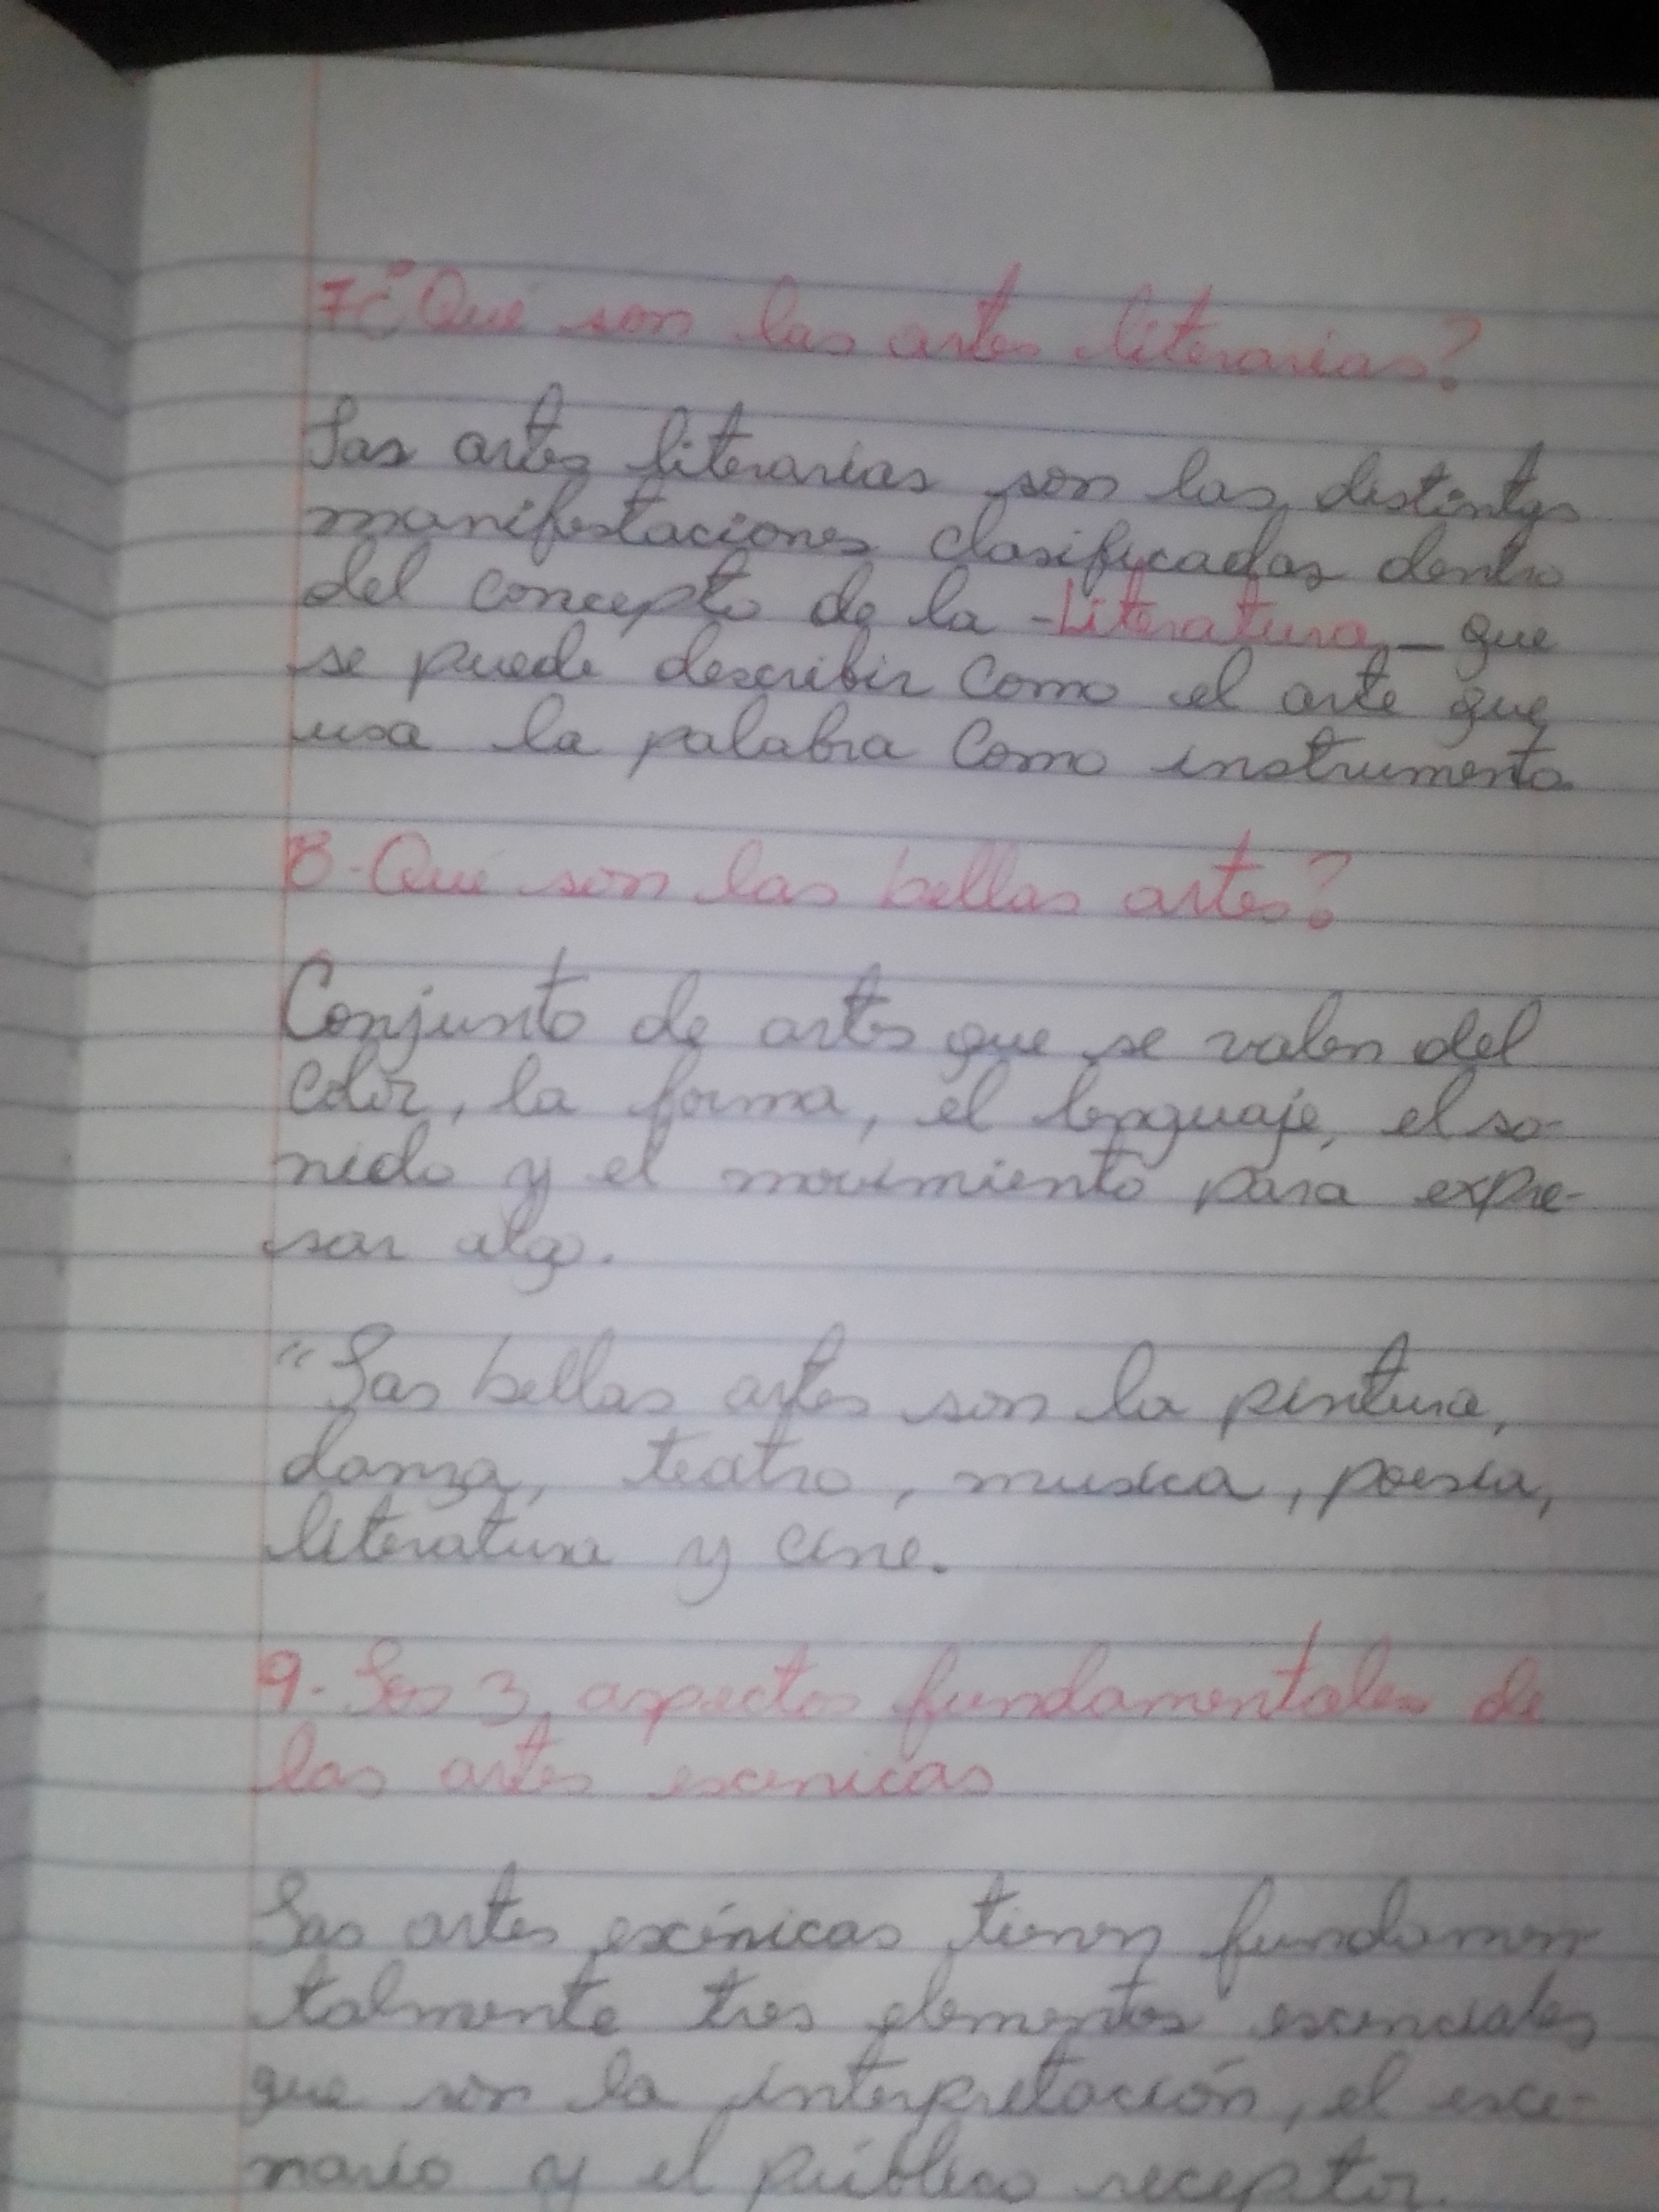 7-¿Qué son las artes literarias?
Las artes literarias son las distintas
manifestaciones clasificadas dentro
del concepto de la -Literatura- que
se puede describir como el arte que
usa la palabra como instrumento.
8-Qué son las bellas artes?
Conjunto de artes que se valen del
color, la forma, el lenguaje, el so-
nido y el movimiento para expre-
sar algo.
"Las bellas artes son la pintura,
danza, teatro, musica, poesia,
literatura y cine.
9-Los 3 aspectos fundamentales de
las artes escenicas
Las artes escénicas tienen fundamen
talmente tres elementos escenciales
que son la interpretación, el esce-
nario y el público receptor.